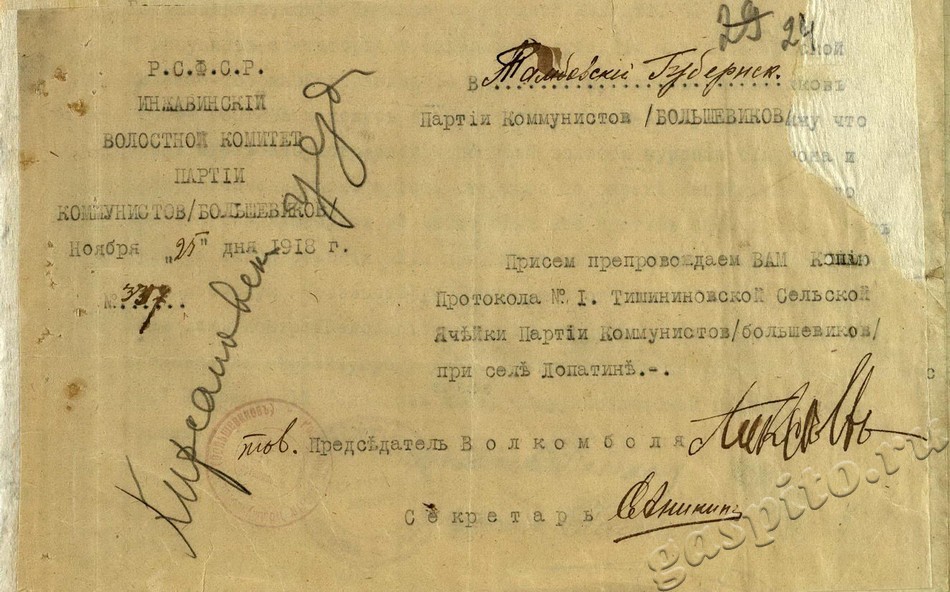 29 24
Р.С.Ф.С.Р.
ИНЖАВИНСКІЙ
ВОЛОСТНОЙ КОМИТЕТ
ПАРТІИ
КОММУНИСТОВ/БОЛЬШЕВИКОВ/
Ноября „25" дня 1918 г.
№ 337
Кирсановск. уезд
В Тамбовскій Губернск.
Партіи Коммунистов /БОЛЬШЕВИКОВ/
Присем препровождаем ВАМ Копію
Протокола № I. Тишининовской Сельской
Ячѣйки Партіи Коммунистов/большевиков/
при селѣ Лопатинѣ.-.
тов. Предсѣдатель Волкомболя
Секретарь САникин
gaspito.ru